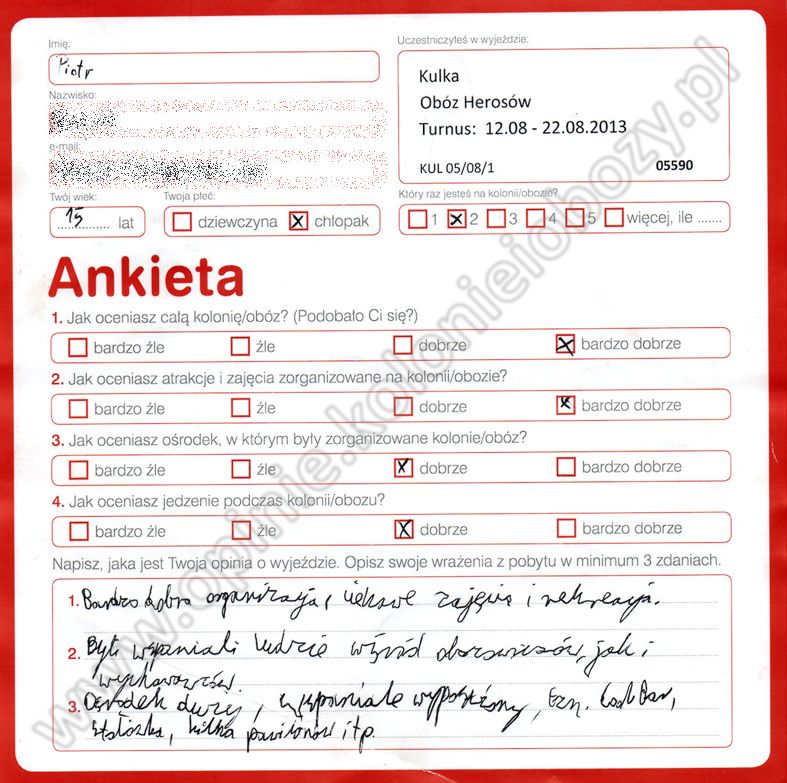 Imię:
Piotr
Uczestniczyłeś w wyjeździe:
Kulka
Obóz Herosów
Turnus: 12.08 - 22.08.2013
KUL 05/08/1 05590
Nazwisko:
e-mail:
Twój wiek:
15 lat
Twoja płeć:
dziewczyna x chłopak
Który raz jesteś na kolonii/obozie?
1 x 2 3 4 5 więcej, ile .......
Ankieta
1. Jak oceniasz całą kolonię/obóz? (Podobało Ci się?)
bardzo źle źle dobrze x bardzo dobrze
2. Jak oceniasz atrakcje i zajęcia zorganizowane na kolonii/obozie?
bardzo źle źle dobrze x bardzo dobrze
3. Jak oceniasz ośrodek, w którym były zorganizowane kolonie/obóz?
bardzo źle źle x dobrze bardzo dobrze
4. Jak oceniasz jedzenie podczas kolonii/obozu?
bardzo źle źle x dobrze bardzo dobrze
Napisz, jaka jest Twoja opinia o wyjeździe. Opisz swoje wrażenia z pobytu w minimum 3 zdaniach.
1. Bardzo dobra organizacja, ciekawe zajęcia i rekreacja.
2. Byli wspaniali ludzie wśród obozowiczów, jak i
wychowawców.
3. Ośrodek duży, wyposażony, tzn.
stołówka, kilka pawilonów itp.
www.opinie.kolonieiobozy.pl